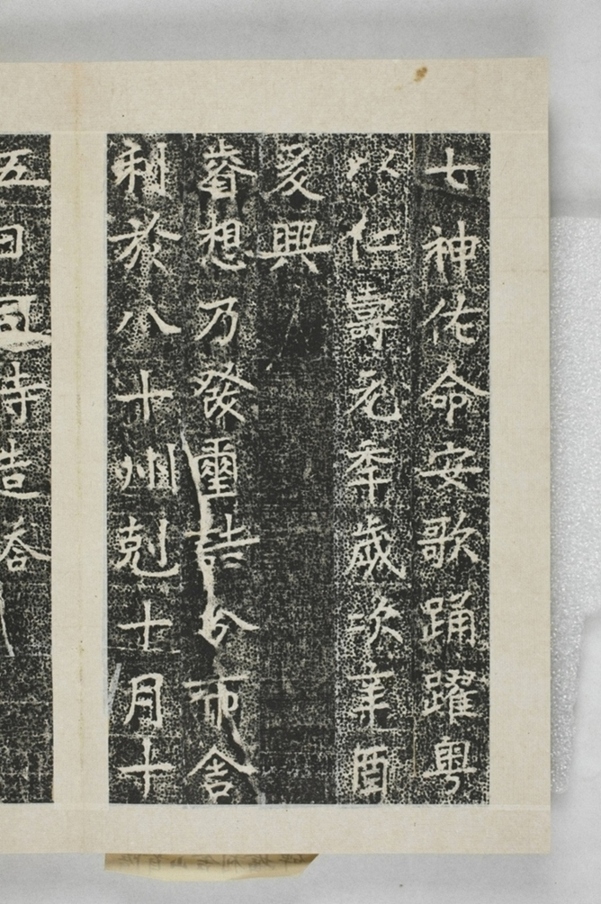 七神佐命安歌踊躍粵
以仁壽元年歲次辛酉
爰興
睿想乃發璽誥分布舍
利於八十州剋十月十
五日同時造塔